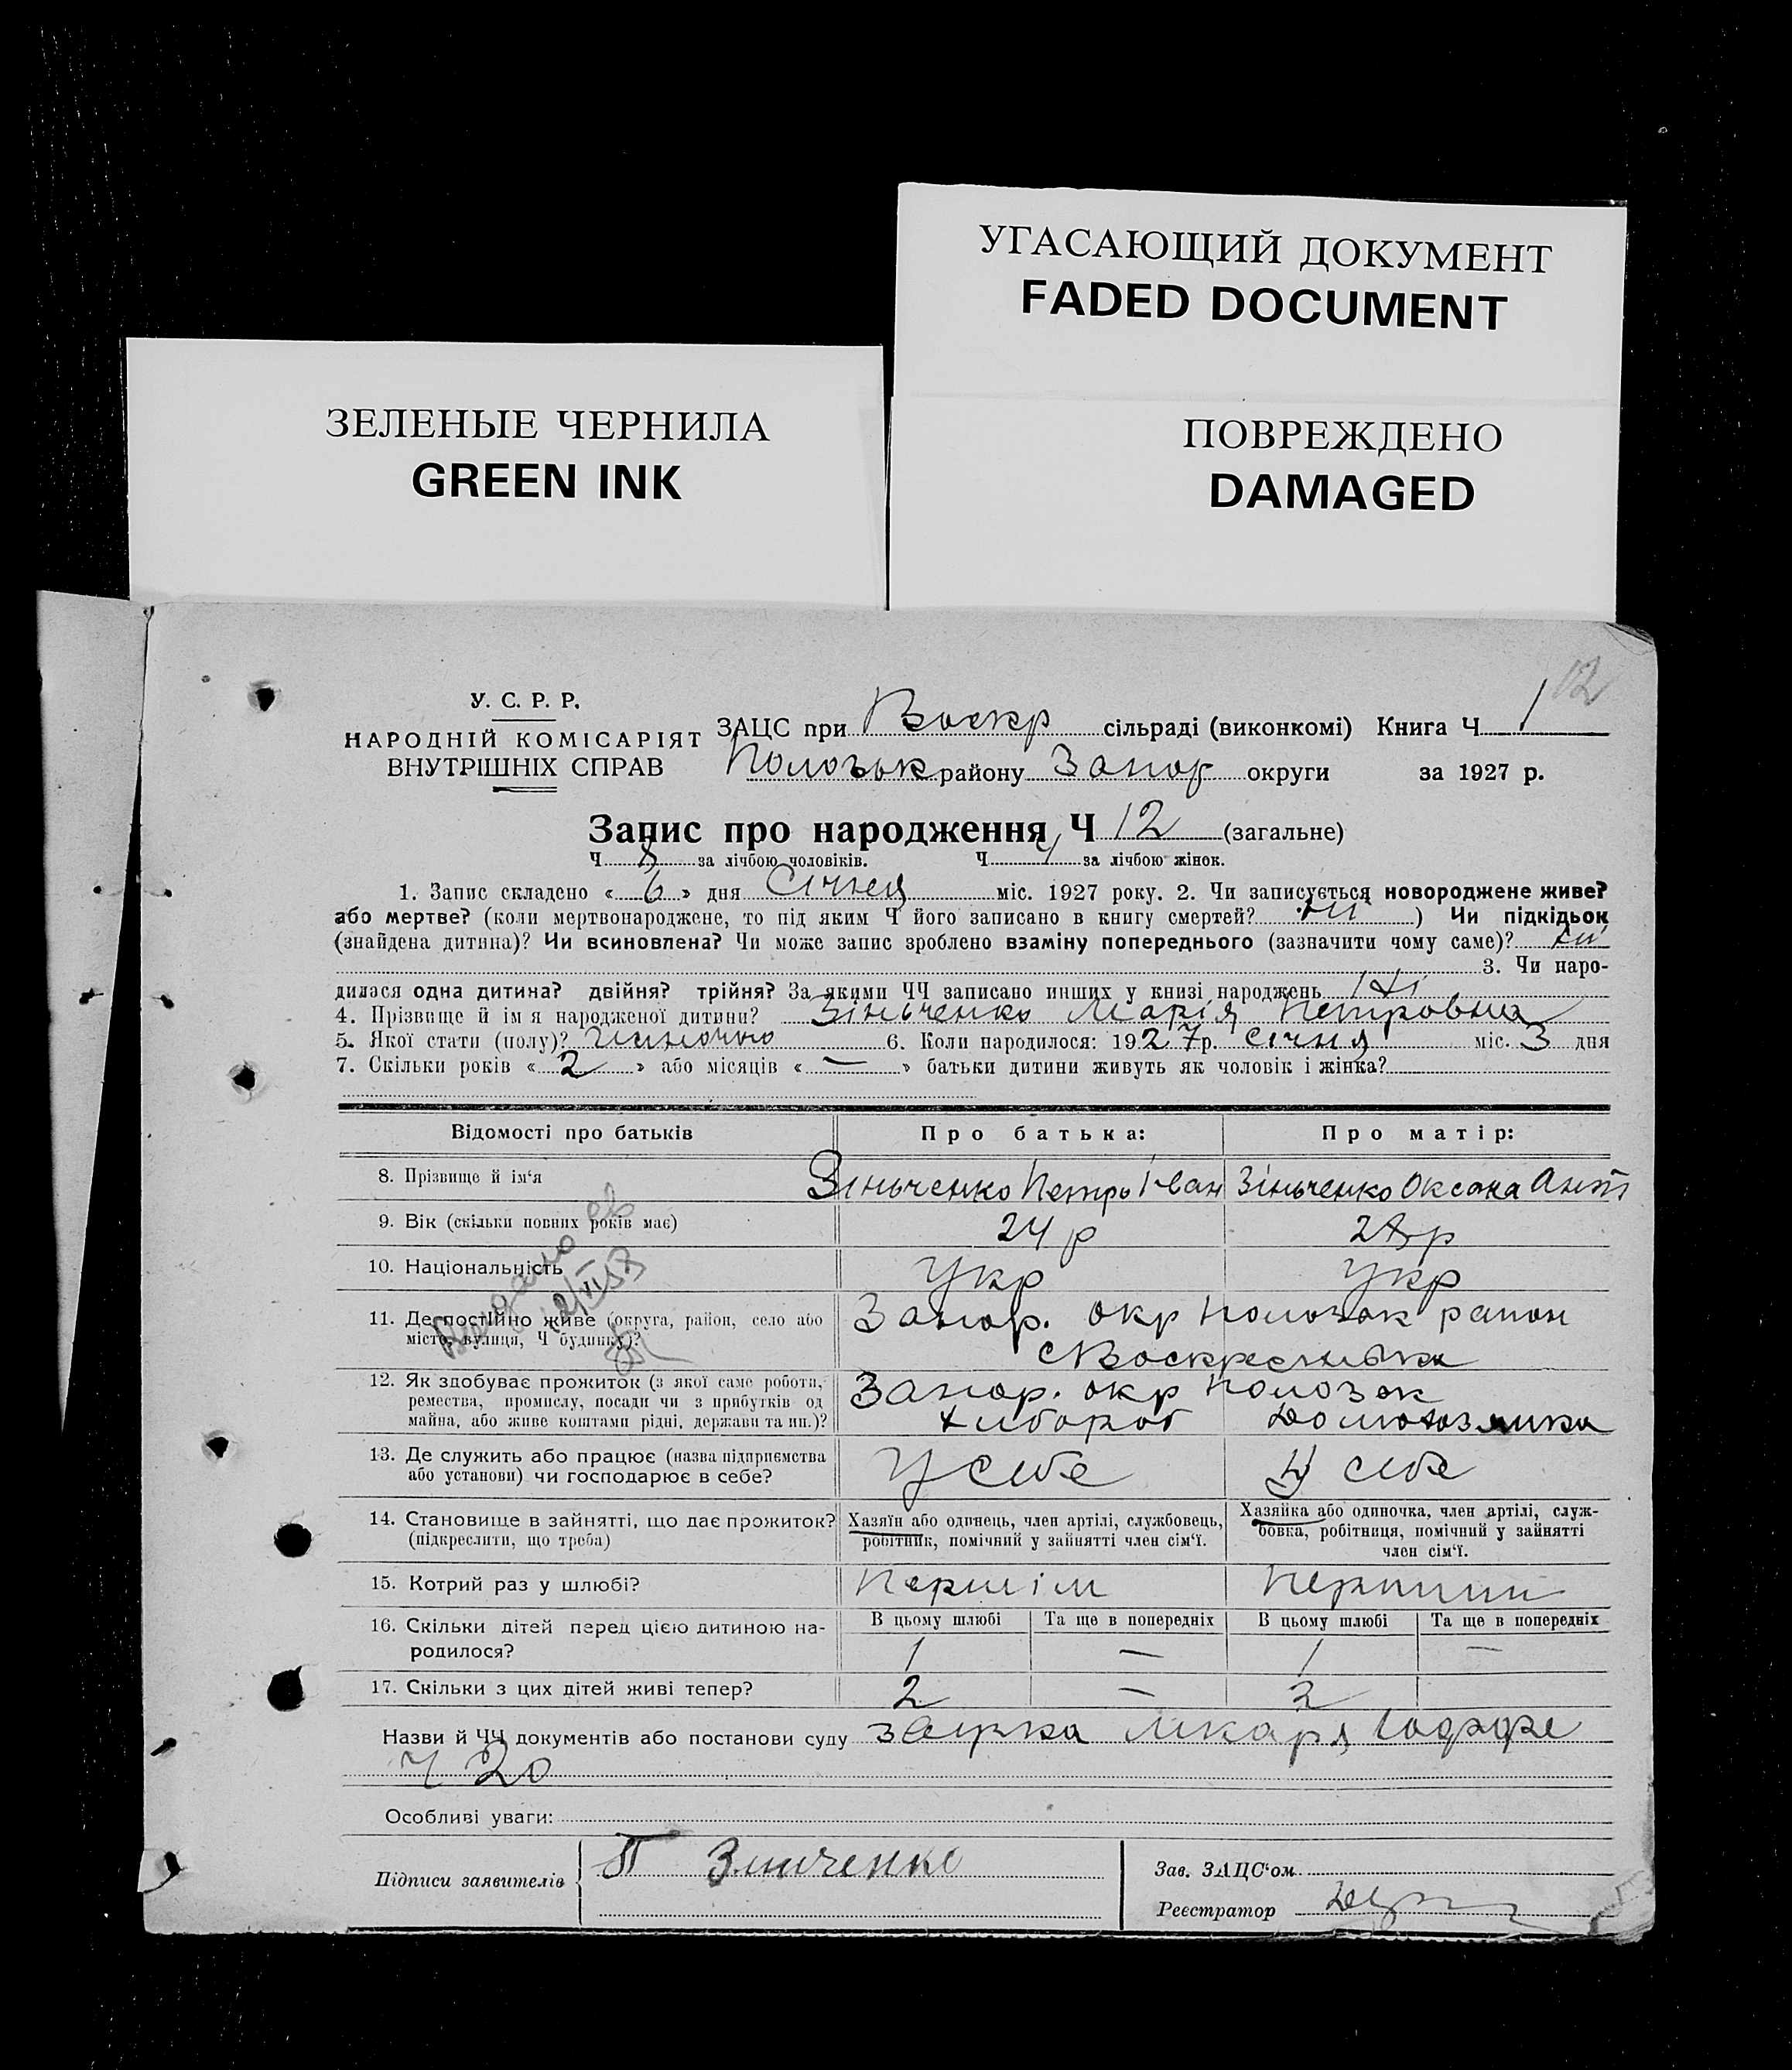 УГАСАЮЩИЙ ДОКУМЕНТ
FADED DOCUMENT
ЗЕЛЕНЫЕ ЧЕРНИЛА
GREEN INK
ПОВРЕЖДЕНО
DAMAGED
12
У. С. Р. Р.
НАРОДНІЙ КОМІСАРІЯТ
ВНУТРІШНІХ СПРАВ
ЗАЦС при Воскр сільраді (виконкомі) Книга Ч 1
району Запор округи за 1927 р.
Запис про народження Ч 12 (загальне)
Ч 8 за лічбою чоловіків. Ч 4 за лічбою жінок.
1. Запис складено « 6 » дня Січня міс. 1927 року. 2. Чи записується новороджене живе?
або мертве? (коли мертвонароджене, то під яким Ч його записано в книгу смертей? ні ) Чи підкідьок
(знайдена дитина)? Чи всиновлена? Чи може запис зроблено взаміну попереднього (зазначити чому саме)? ні
3. Чи наро-
дилася одна дитина? двійня? трійня? За якими ЧЧ записано инших у книзі народжень
4. Прізвище й ім я народженої дитини? Зіньченко Марія Петровна
5. Якої стати (полу)? жиночою 6. Коли народилося: 1927 р. січня міс. 3 дня
7. Скільки років « 2 » або місяців « — » батьки дитини живуть як чоловік і жінка?
Відомості про батьків Про батька: Про матір:
8. Прізвище й ім‘я Зіньченко Петро Іван Зіньченко Оксана Ант
9. Вік (скільки повних років має) 24 р р
10. Національність Укр Укр
11. Де постійно живе (округа, район, село або Запор. окр район
місто, вулиця, Ч будинку)? с Воскресенька
12. Як здобуває прожиток (з якої саме роботи, Запор. окр
ремества, промислу, посади чи з прибутків од
майна, або живе коштами рідні, держави та ин.)? хлибороб
13. Де служить або працює (назва підприємства У себе У себе
або установи) чи господарює в себе?
14. Становище в зайнятті, що дає прожиток? Хазяїн або одинець, член артілі, службовець, Хазяйка або одиночка, член артілі, служ-
(підкреслити, що треба) робітник, помічний у зайнятті член сім‘ї. бовка, робітниця, помічний у зайнятті
член сім‘ї.
15. Котрий раз у шлюбі? Першім
16. Скільки дітей перед цією дитиною на- В цьому шлюбі Та ще в попередніх В цьому шлюбі Та ще в попередніх
родилося? 1 — 1 —
17. Скільки з цих дітей живі тепер? 2 — 2
Назви й ЧЧ документів або постанови суду лікаря
Ч 20
Особливі уваги:
Підписи заявителів П Зинченко
Зав. ЗАЦС‘ом
Реєстратор
Видано